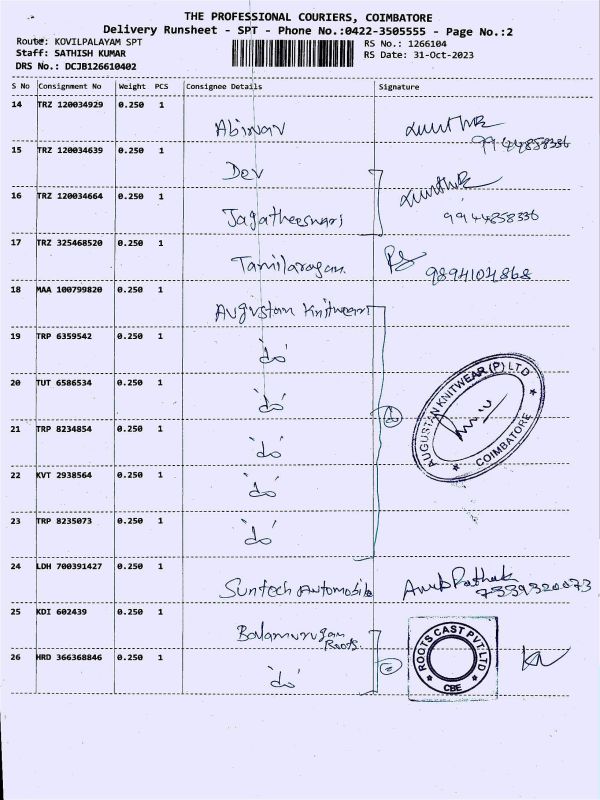 THE PROFESSIONAL COURIERS, COIMBATORE
Delivery Runsheet - SPT - Phone No.:0422-3505555 - Page No.:2
Route: KOVILPALAYAM SPT RS No.: 1266104
Staff: SATHISH KUMAR RS Date: 31-Oct-2023
DRS No.: DCJB126610402
S No Consignment No Weight PCS Consignee Details Signature
14 TRZ 120034929 0.250 1
Abinav
9944858336
15 TRZ 120034639 0.250 1
Dev
16 TRZ 120034664 0.250 1
Jagatheeswari 9944858336
17 TRZ 325468520 0.250 1
Tamilarasan. 9894101868
18 MAA 100799820 0.250 1
Augustan Knitwear
19 TRP 6359542 0.250 1
"do"
20 TUT 6586534 0.250 1
"do"
AUGUSTAN KNITWEAR (P) LTD
COIMBATORE
21 TRP 8234854 0.250 1
"do"
22 KVT 2938564 0.250 1
"do"
23 TRP 8235073 0.250 1
"do"
24 LDH 700391427 0.250 1
Suntech Automobile 7339320073
25 KDI 602439 0.250 1
Balamurugan
Roots.
ROOTS CAST PVT LTD
CBE
26 HRD 366368846 0.250 1
"do" 2